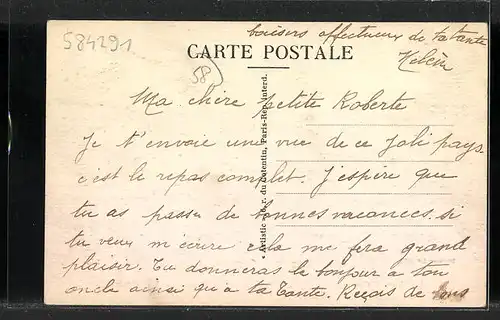 584291
baisers affectueux de ta tante
CARTE POSTALE
58
Ma chère petite Roberte
Je t'envoie une vue de ce Joli pays
c'est le repas complet. J'espère que
tu as passer de bonnes vacances. si
tu veux m'écrire cela me fera grand
plaisir. Tu donneras le bonjour a ton
oncle ainsi qu'a ta Tante. Reçois de tous
Artistic 5, r. du Cotentin, Paris-Rep. Interd.